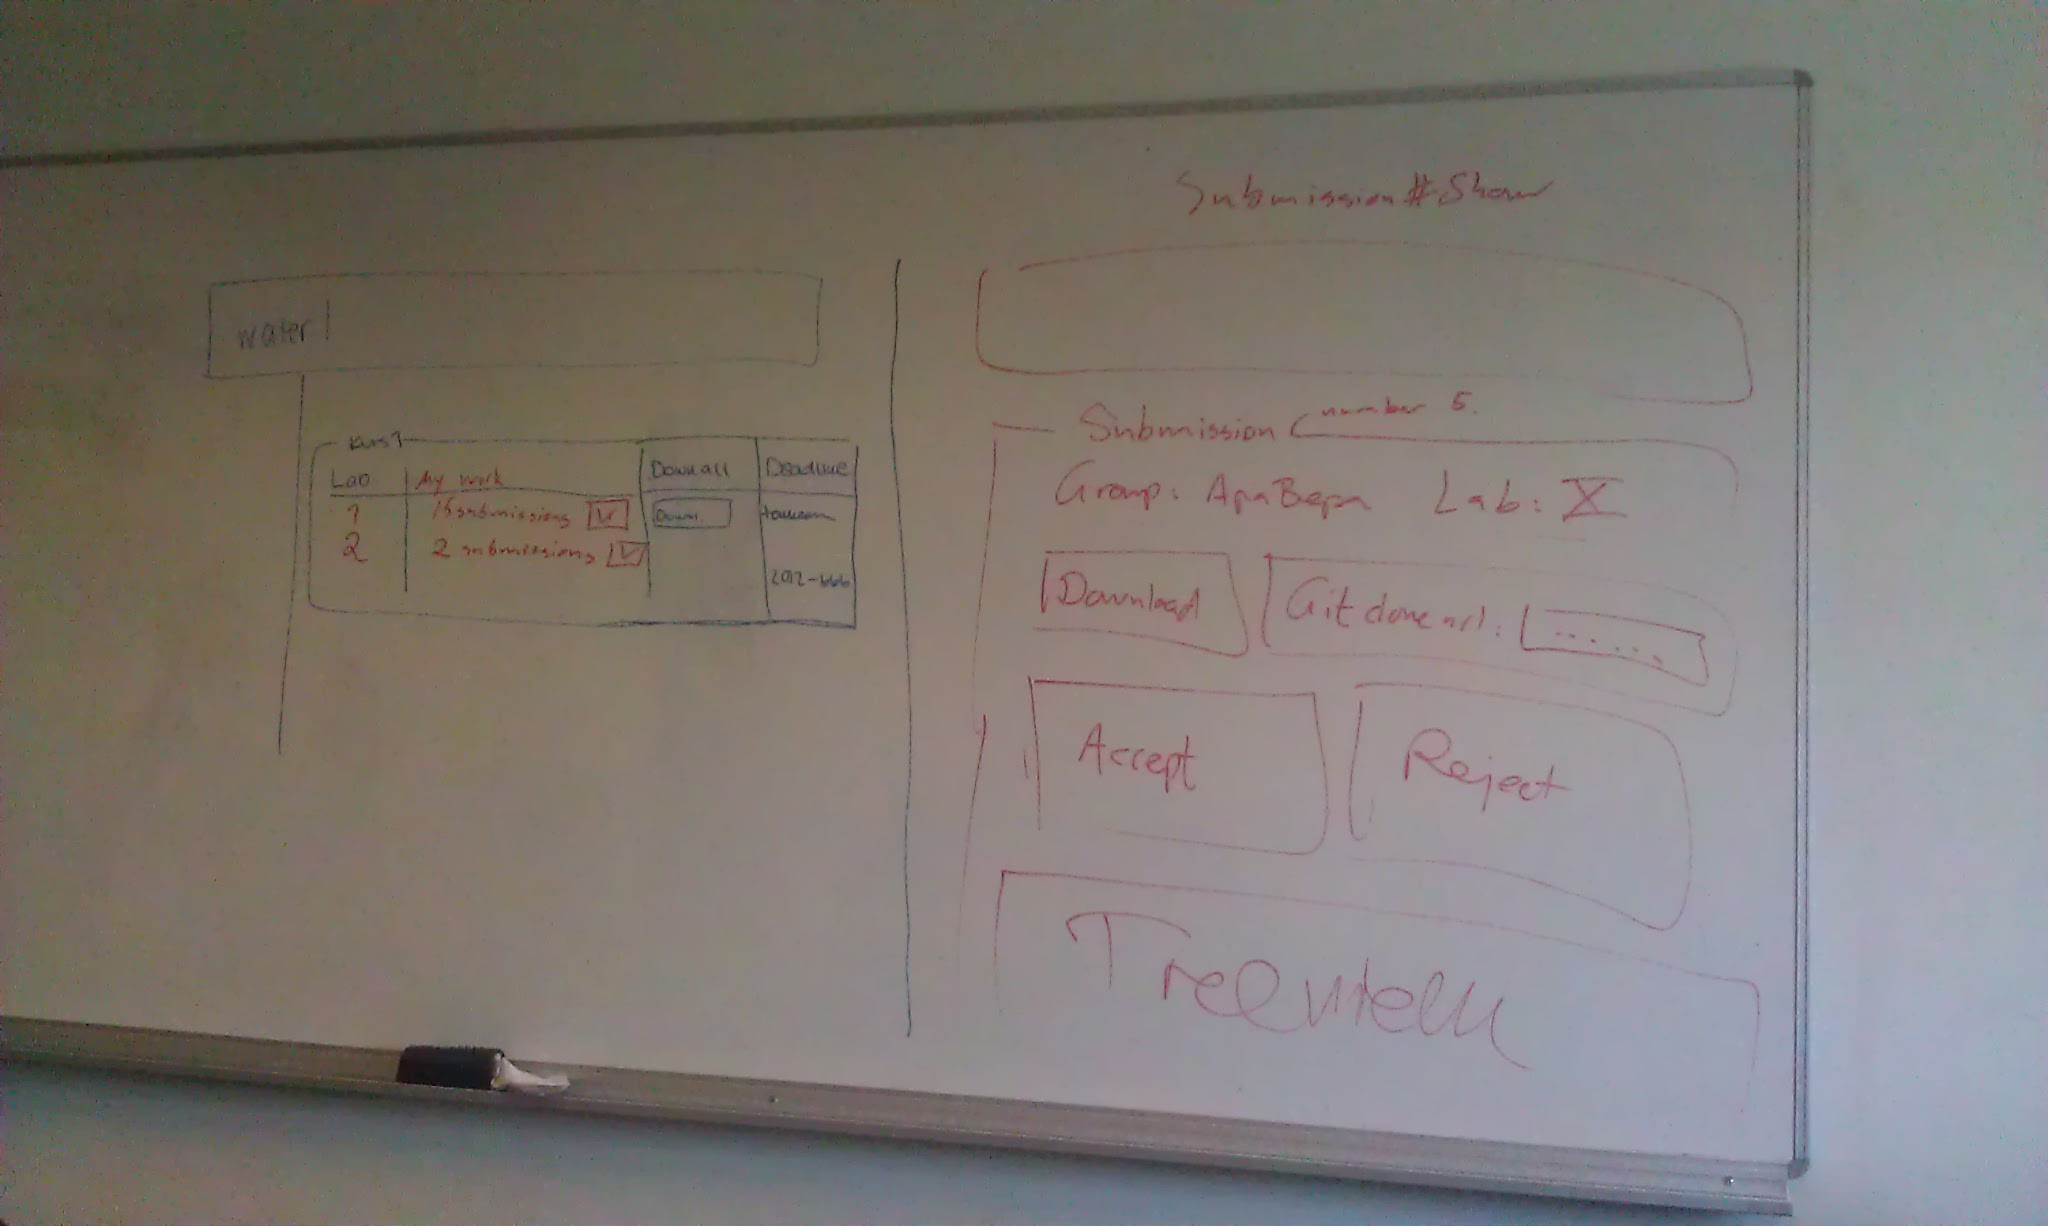 water
Kurs1
Lab My work Down all Deadline
1 15 submissions Down.
2 2 submissions
Submission#Show
Submission number 5.
Group: ApaBepa Lab: X
Download Git clone url: ......
Accept Reject
Treeview